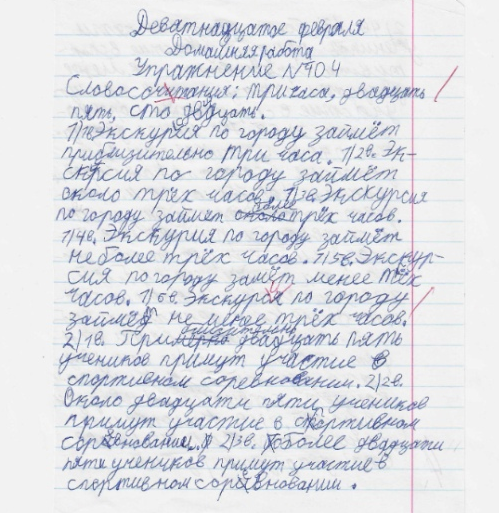 Деватнадцатое февраля
Домашняя работа
Упражнение №104
Словосочитания: три часа, двадцать
пять, сто двадцать.
1)1в. Экскурсия по городу займёт
приблизительно три часа. 1)2в. Эк-
скурсия по городу займёт
около трёх часов. 1)3в. Экскурсия
по городу займёт более трёх часов.
1)4в. Экскурсия по городу займёт
не более трёх часов. 1)5в. Экскур-
сия по городу замёт менее трёх
часов. 1)6в. Экскурсия по городу
займёт не менее трёх часов.
2)1в. Приблизительно двадцать пять
учеников примут участие в
спортивном соревновании. 2)2в.
Около двадцати пяти учеников
примут участие в спортивном
соревновании. 2)3в. Более двадцати
пяти учеников примут участие в
спортивном соревновании.